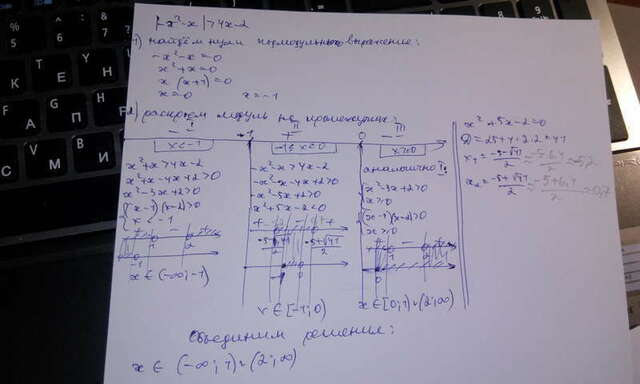 |-x²-x|>4x-2
1) найдём нули подмодульного выражение:
-x²-x=0
x²+x=0
x(x+1)=0
x=0 x=-1
2) раскроем модуль на промежутках:
- I -1 + II 0 - III
x<-1
x²+x>4x-2
x²+x-4x+2>0
x²-3x+2>0
(x-1)(x-2)>0
x<-1
x∈(-∞;-1)
-1≤x≤0
-x²-x>4x-2
-x²-x-4x+2>0
-x²-5x+2>0
x²+5x-2<0
+ - +
-5-√41/2 -5+√41/2
-1 0
x∈[-1;0)
x>0
аналогично I:
x²-3x+2>0
x≥0
(x-1)(x-2)>0
x≥0
x∈[0;1)∪(2;∞)
x²+5x-2=0
D=25+4·2=41
x₁=-5-√41/2≈-5-6,4/2≈-5,7
x₂=-5+√41/2≈-5+6,4/2≈0,7
Объединим решения:
x∈(-∞;1)∪(2;∞)